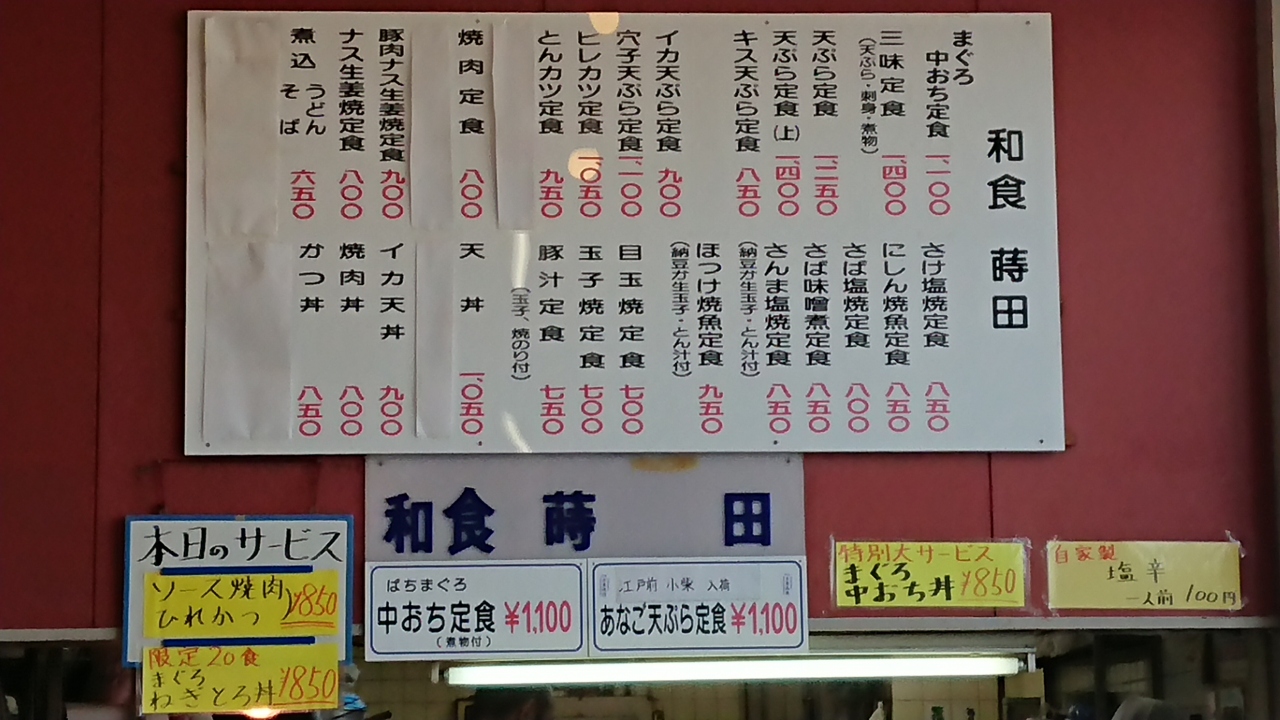 和食 蒔田
まぐろ
中おち定食 一、一〇〇
三味定食 一、四〇〇
（天ぷら・刺身・煮物）
天ぷら定食 一、二五〇
天ぷら定食（上） 一、四〇〇
キス天ぷら定食 八五〇
イカ天ぷら定食 九〇〇
穴子天ぷら定食 一、一〇〇
ヒレカツ定食 一、〇五〇
とんカツ定食 九五〇
焼肉定食 八〇〇
豚肉ナス生姜焼定食 九〇〇
ナス生姜焼定食 八〇〇
煮込 うどん
そば 六五〇
さけ塩焼定食 八五〇
にしん焼魚定食 八五〇
さば塩焼定食 八〇〇
さば味噌煮定食 八五〇
さんま塩焼定食 八五〇
（納豆か生玉子・とん汁付）
ほっけ焼魚定食 九五〇
（納豆か生玉子・とん汁付）
目玉焼定食 七〇〇
玉子焼定食 七〇〇
豚汁定食 七五〇
（玉子、焼のり付）
天丼 一、〇五〇
イカ天丼 九〇〇
焼肉丼 八〇〇
かつ丼 八五〇
和食 蒔田
本日のサービス
ソース焼肉
ひれかつ ¥850
限定20食
まぐろ
ねぎとろ丼 ¥850
ばちまぐろ
中おち定食 ¥1,100
（煮物付）
江戸前 小柴 入荷
あなご天ぷら定食 ¥1,100
特別大サービス
まぐろ
中おち丼 ¥850
自家製
塩辛
一人前 100円